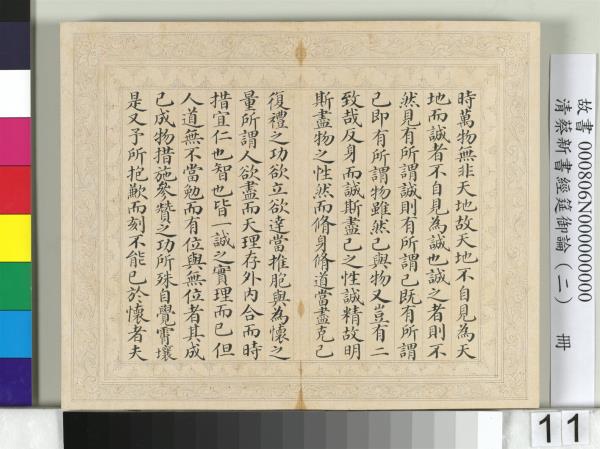 時萬物無非天地故天地不自見為天
地而誠者不自見為誠也誠之者則不
然見有所謂誠則有所謂己既有所謂
己即有所謂物雖然己與物又豈有二
致哉反身而誠斯盡己之性誠精故明
斯盡物之性然而脩身脩道當盡克己
復禮之功欲立欲達當推胞與為懷之
量所謂人欲盡而天理存外內合而時
措宜仁也智也皆一誠之實理而已但
人道無不當勉而有位與無位者其成
己成物措施參贊之功所殊自覺霄壤
是又予所抱歉而刻不能已於懷者夫
故書 000806N000000000
清蔡新書經筵御論(二) 冊
11